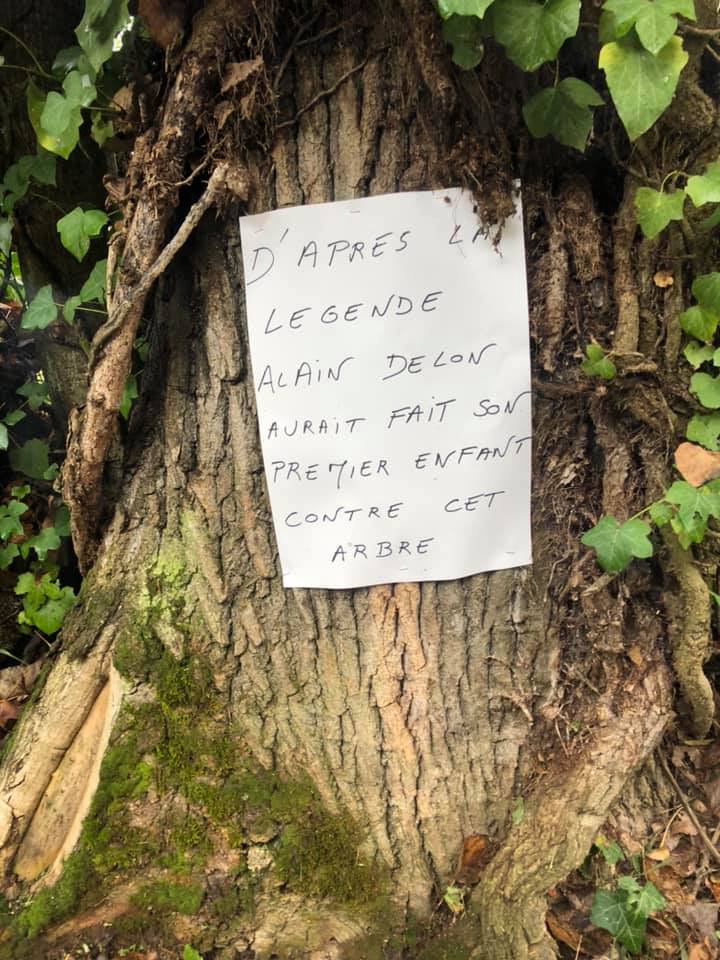 D'APRÈS LA
LEGENDE
ALAIN DELON
AURAIT FAIT SON
PREMIER ENFANT
CONTRE CET
ARBRE